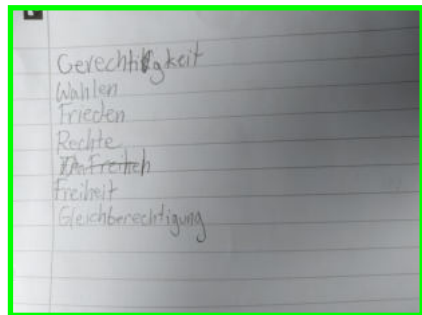 Gerechtigkeit
Wahlen
Frieden
Rechte
Freiheit
Gleichberechtigung